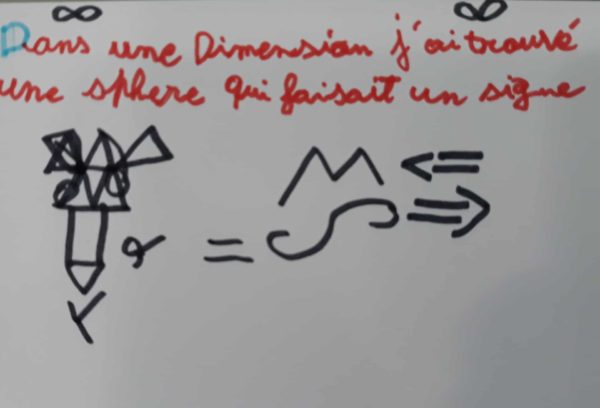 ∞ ∞
Dans une Dimension j'ai trouvé
une sphere qui faisait un signe
M ⇐
α = S ⇒
Y